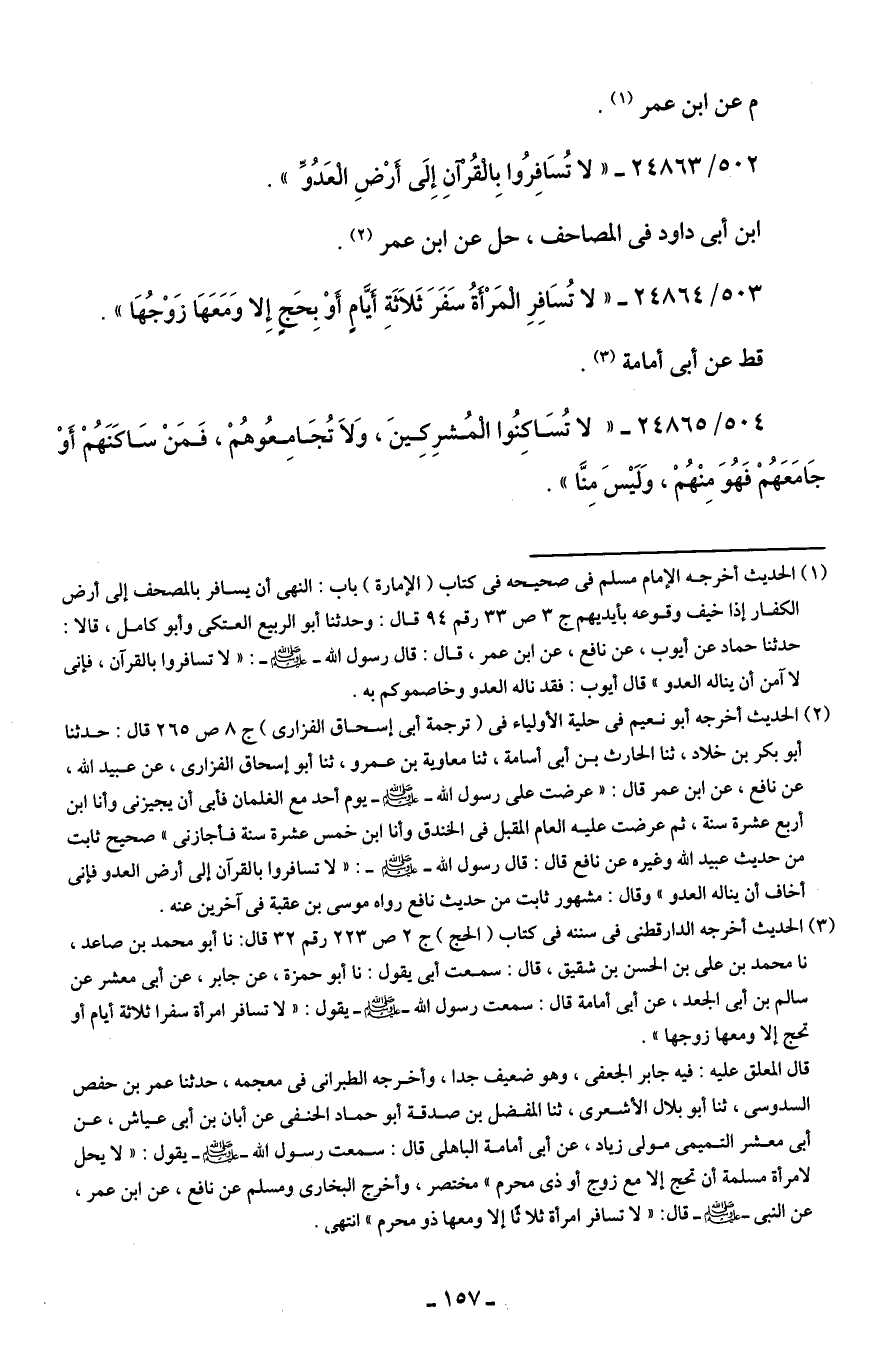 م عن ابن عمر (١) .
٥٠٢/ ٢٤٨٦٣ ـ « لا تُسَافِرُوا بِالْقُرْآنِ إِلَى أَرْضِ الْعَدُوِّ » .
ابن أبى داود فى المصاحف ، حل عن ابن عمر (٢) .
٥٠٣/ ٢٤٨٦٤ ـ « لا تُسَافِرِ الْمَرْأَةُ سَفَرَ ثَلَاثَةِ أَيَّامٍ أَوْ بِحَجٍ إِلا وَمَعَهَا زَوْجُهَا » .
قط عن أبى أمامة (٣) .
٥٠٤/ ٢٤٨٦٥ ـ « لا تُسَاكِنُوا الْمُشرِكِينَ ، وَلاَ تُجَامِعُوهُمْ ، فَمَنْ سَاكَنَهُمْ أَوْ
جَامَعَهُمْ فَهُوَ مِنْهُمْ ، وَلَيْسَ مِنَّا » .
(١) الحديث أخرجه الإمام مسلم فى صحيحه فى كتاب ( الإمارة ) باب : النهى أن يسافر بالمصحف إلى أرض
الكفار إذا خيف وقوعه بأيديهم ج ٣ ص ٣٣ رقم ٩٤ قال : وحدثنا أبو الربيع العتكى وأبو كامل ، قالا :
حدثنا حماد عن أيوب ، عن نافع ، عن ابن عمر ، قال : قال رسول الله ـ ﷺ ـ : « لا تسافروا بالقرآن ، فإنى
لا آمن أن يناله العدو » قال أيوب : فقد ناله العدو وخاصموكم به .
(٢) الحديث أخرجه أبو نعيم فى حلية الأولياء فى ( ترجمة أبى إسحاق الفزارى ) ج ٨ ص ٢٦٥ قال : حدثنا
أبو بكر بن خلاد ، ثنا الحارث بن أبى أسامة ، ثنا معاوية بن عمرو ، ثنا أبو إسحاق الفزارى ، عن عبيد الله ،
عن نافع ، عن ابن عمر قال : « عرضت على رسول الله ـ ﷺ ـ يوم أحد مع الغلمان فأبى أن يجيزنى وأنا ابن
أربع عشرة سنة ، ثم عرضت عليه العام المقبل فى الخندق وأنا ابن خمس عشرة سنة فأجازنى » صحيح ثابت
من حديث عبيد الله وغيره عن نافع قال : قال رسول الله ـ ﷺ ـ : « لا تسافروا بالقرآن إلى أرض العدو فإنى
أخاف أن يناله العدو » وقال : مشهور ثابت من حديث نافع رواه موسى بن عقبة فى آخرين عنه .
(٣) الحديث أخرجه الدارقطنى فى سننه فى كتاب ( الحج ) ج ٢ ص ٢٢٣ رقم ٣٢ قال: نا أبو محمد بن صاعد ،
نا محمد بن على بن الحسن بن شقيق ، قال : سمعت أبى يقول : نا أبو حمزة ، عن جابر ، عن أبى معشر عن
سالم بن أبى الجعد ، عن أبى أمامة قال : سمعت رسول الله ـ ﷺ ـ يقول : « لا تسافر امرأة سفرا ثلاثة أيام أو
تحج إلا ومعها زوجها » .
قال المعلق عليه : فيه جابر الجعفى ، وهو ضعيف جدا ، وأخرجه الطبرانى فى معجمه ، حدثنا عمر بن حفص
السدوسى ، ثنا أبو بلال الأشعرى ، ثنا المفضل بن صدقة أبو حماد الحنفى عن أبان بن أبى عياش ، عن
أبى معشر التميمى مولى زياد ، عن أبى أمامة الباهلى قال : سمعت رسول الله ـ ﷺ ـ يقول : « لا يحل
لامرأة مسلمة أن تحج إلا مع زوج أو ذى محرم » مختصر ، وأخرج البخارى ومسلم عن نافع ، عن ابن عمر ،
عن النبى ـ ﷺ ـ قال: « لا تسافر امرأة ثلاثًا إلا ومعها ذو محرم » انتهى .
ـ ١٥٧ ـ